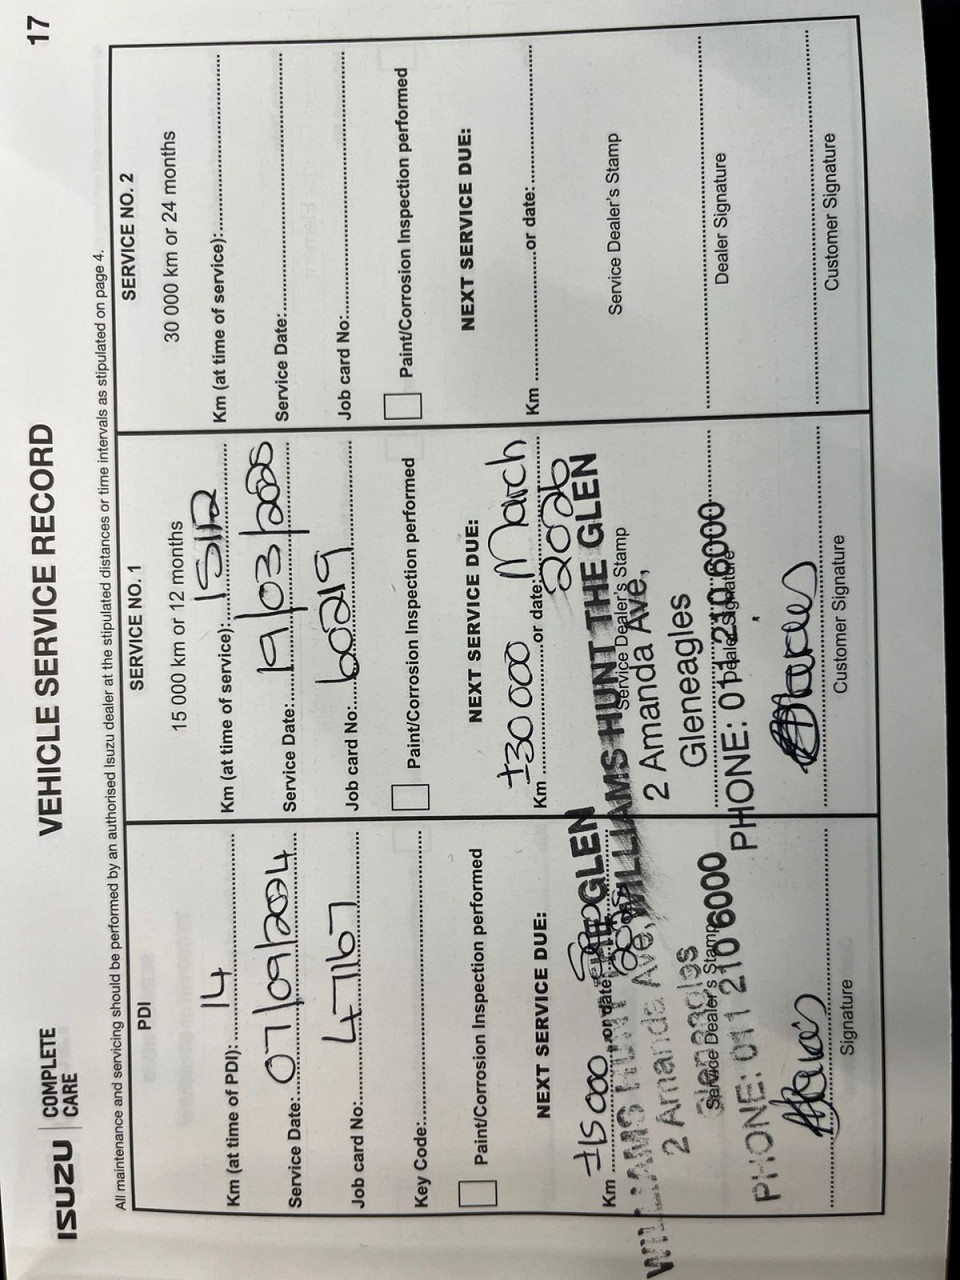 ISUZU COMPLETE CARE
VEHICLE SERVICE RECORD
17
All maintenance and servicing should be performed by an authorised Isuzu dealer at the stipulated distances or time intervals as stipulated on page 4.
PDI
Km (at time of PDI): 14
Service Date: 07/09/2024
Job card No: 47167
Key Code:
Paint/Corrosion Inspection performed
NEXT SERVICE DUE:
Km ±15 000 or date:
WILLIAMS HUNT THE GLEN
2 Amanda Ave,
Gleneagles
Service Dealer's Stamp
PHONE: 011 210 6000
Signature
SERVICE NO. 1
15 000 km or 12 months
Km (at time of service): 15112
Service Date: 19/03/2025
Job card No: 60219
Paint/Corrosion Inspection performed
NEXT SERVICE DUE:
Km ±30 000 or date: March 2026
WILLIAMS HUNT THE GLEN
Service Dealer's Stamp
2 Amanda Ave,
Gleneagles
PHONE: 011 210 6000
Dealer Signature
Customer Signature
SERVICE NO. 2
30 000 km or 24 months
Km (at time of service):
Service Date:
Job card No:
Paint/Corrosion Inspection performed
NEXT SERVICE DUE:
Km or date:
Service Dealer's Stamp
Dealer Signature
Customer Signature